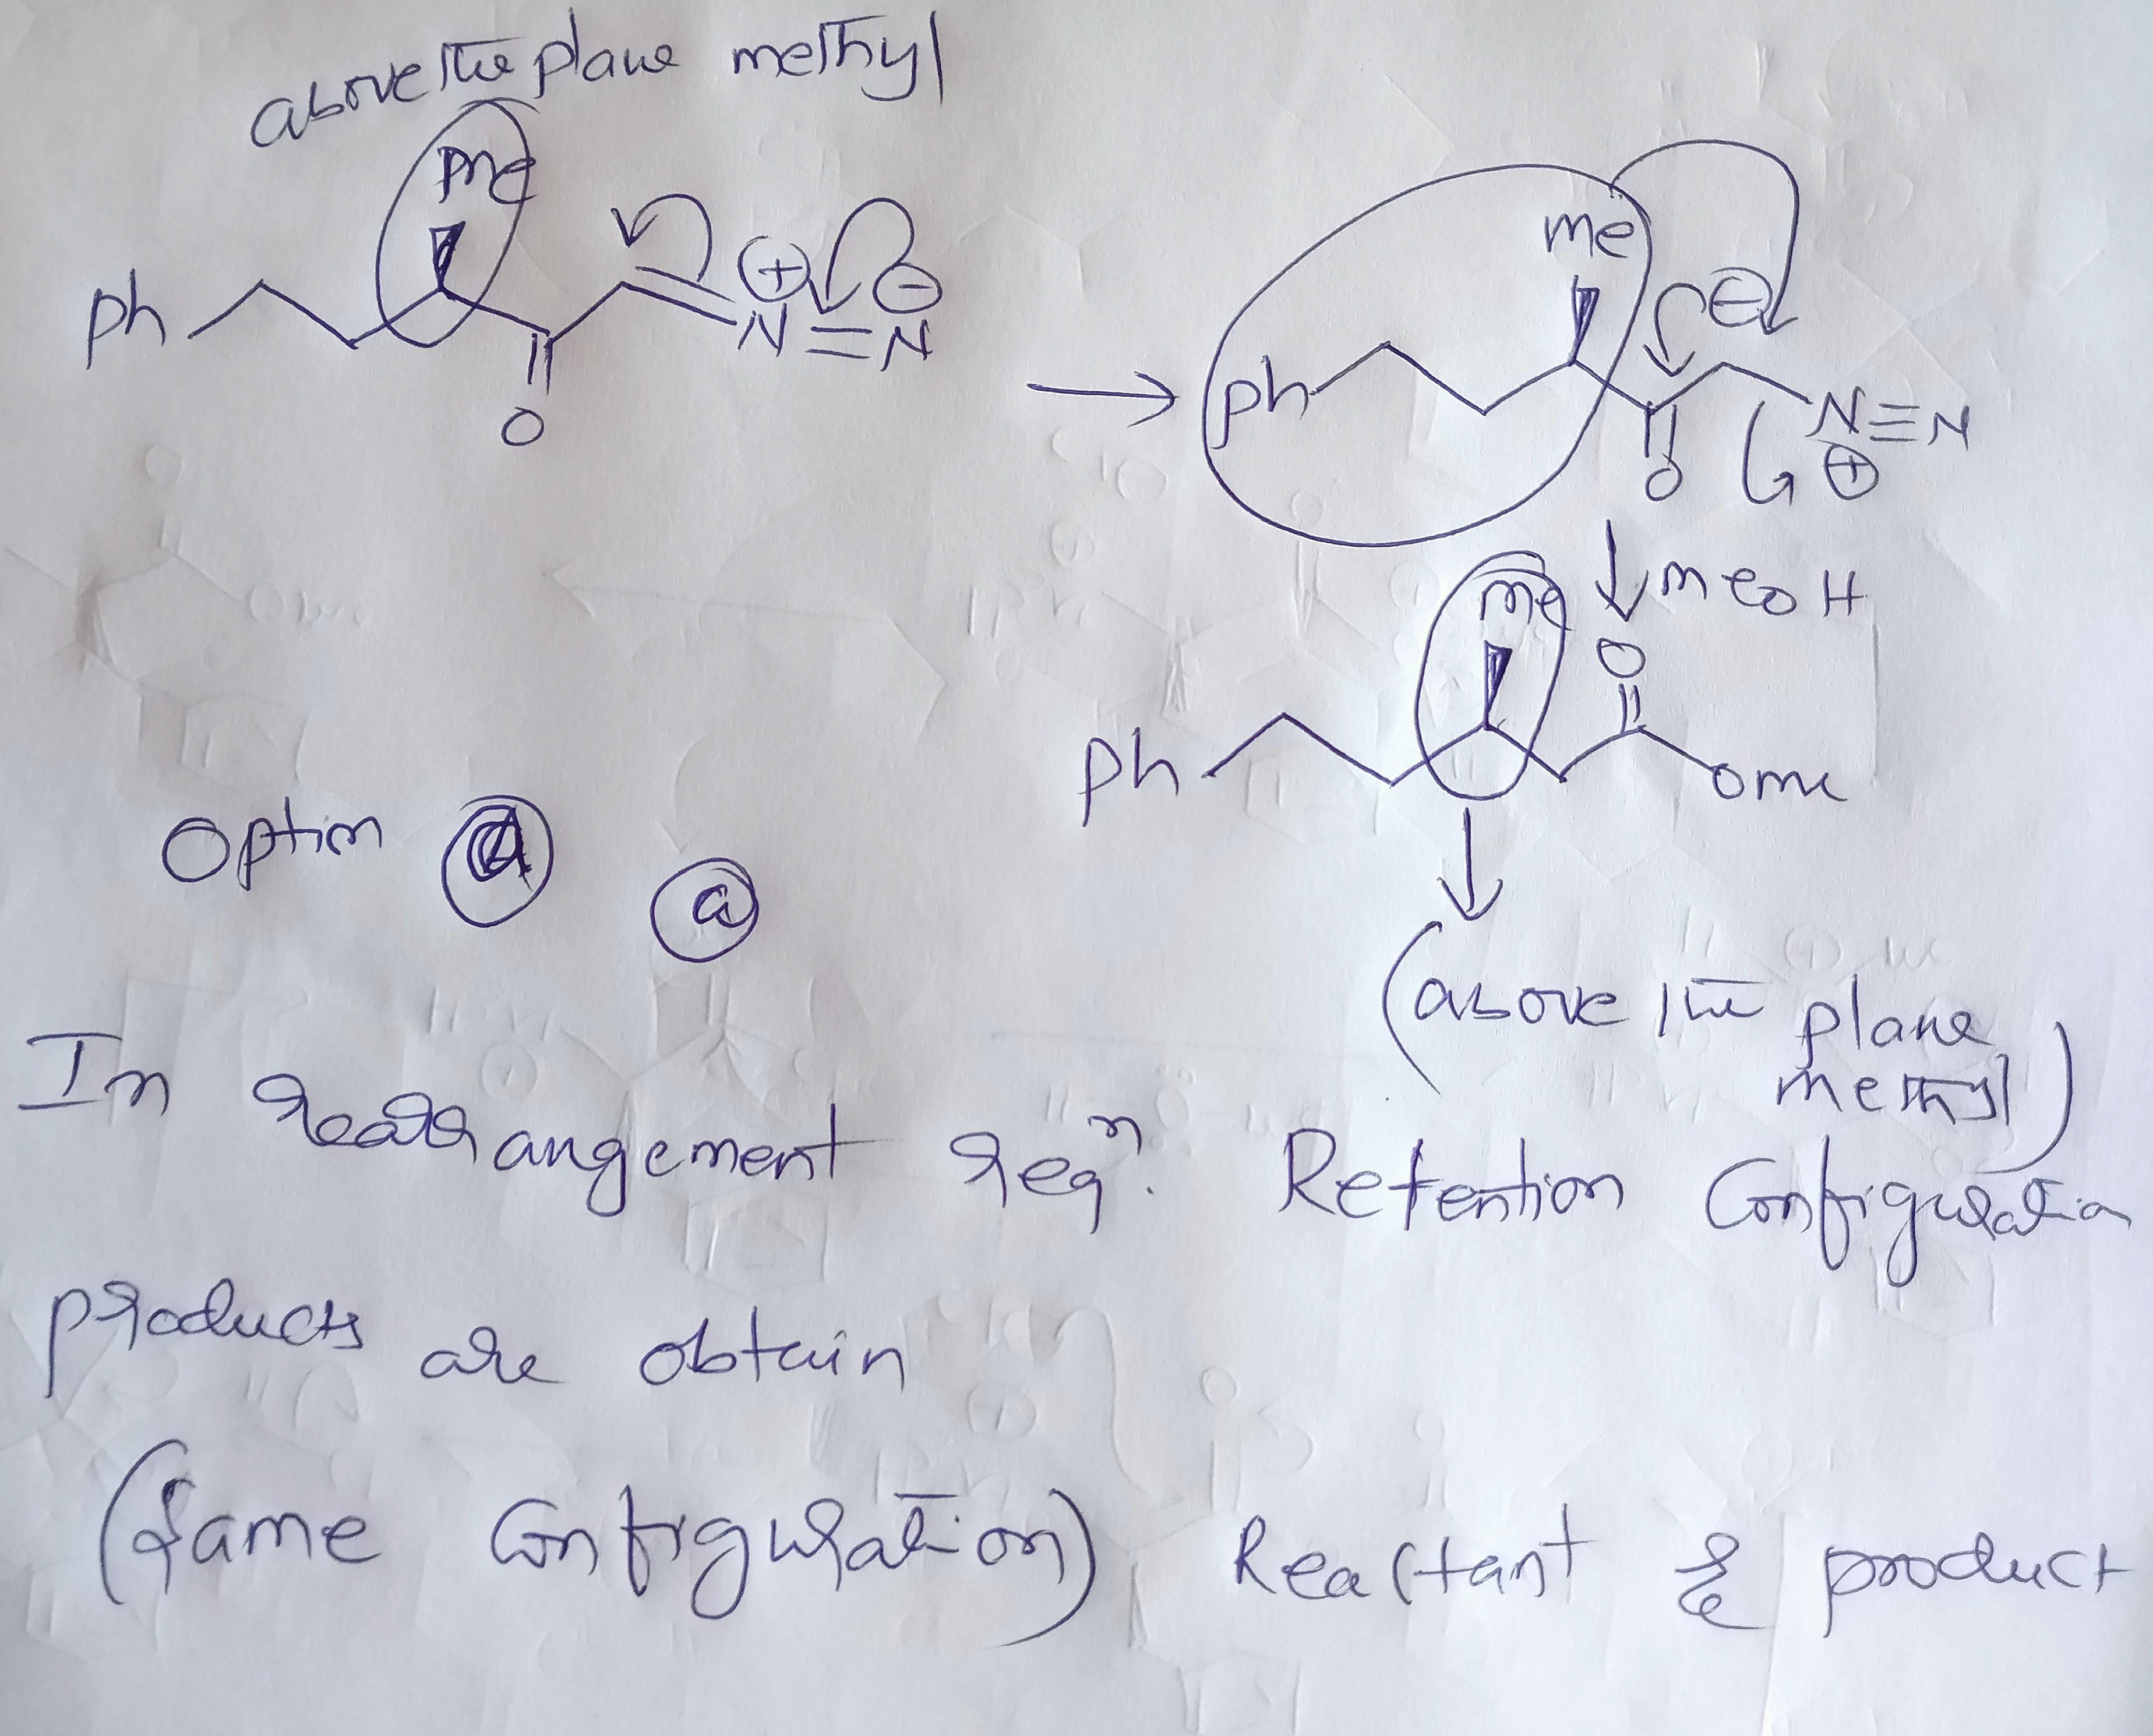 above the plane methyl
Me
Ph
⊕ ⊖
N=N
O
me
⊖
Ph
N≡N
O ⊕
meoH
me
O
Ph
ome
Option a
(above the plane
methyl)
In rearrangement reaⁿ. Retention Configuration
products are obtain
(same Configuration) Reactant & product